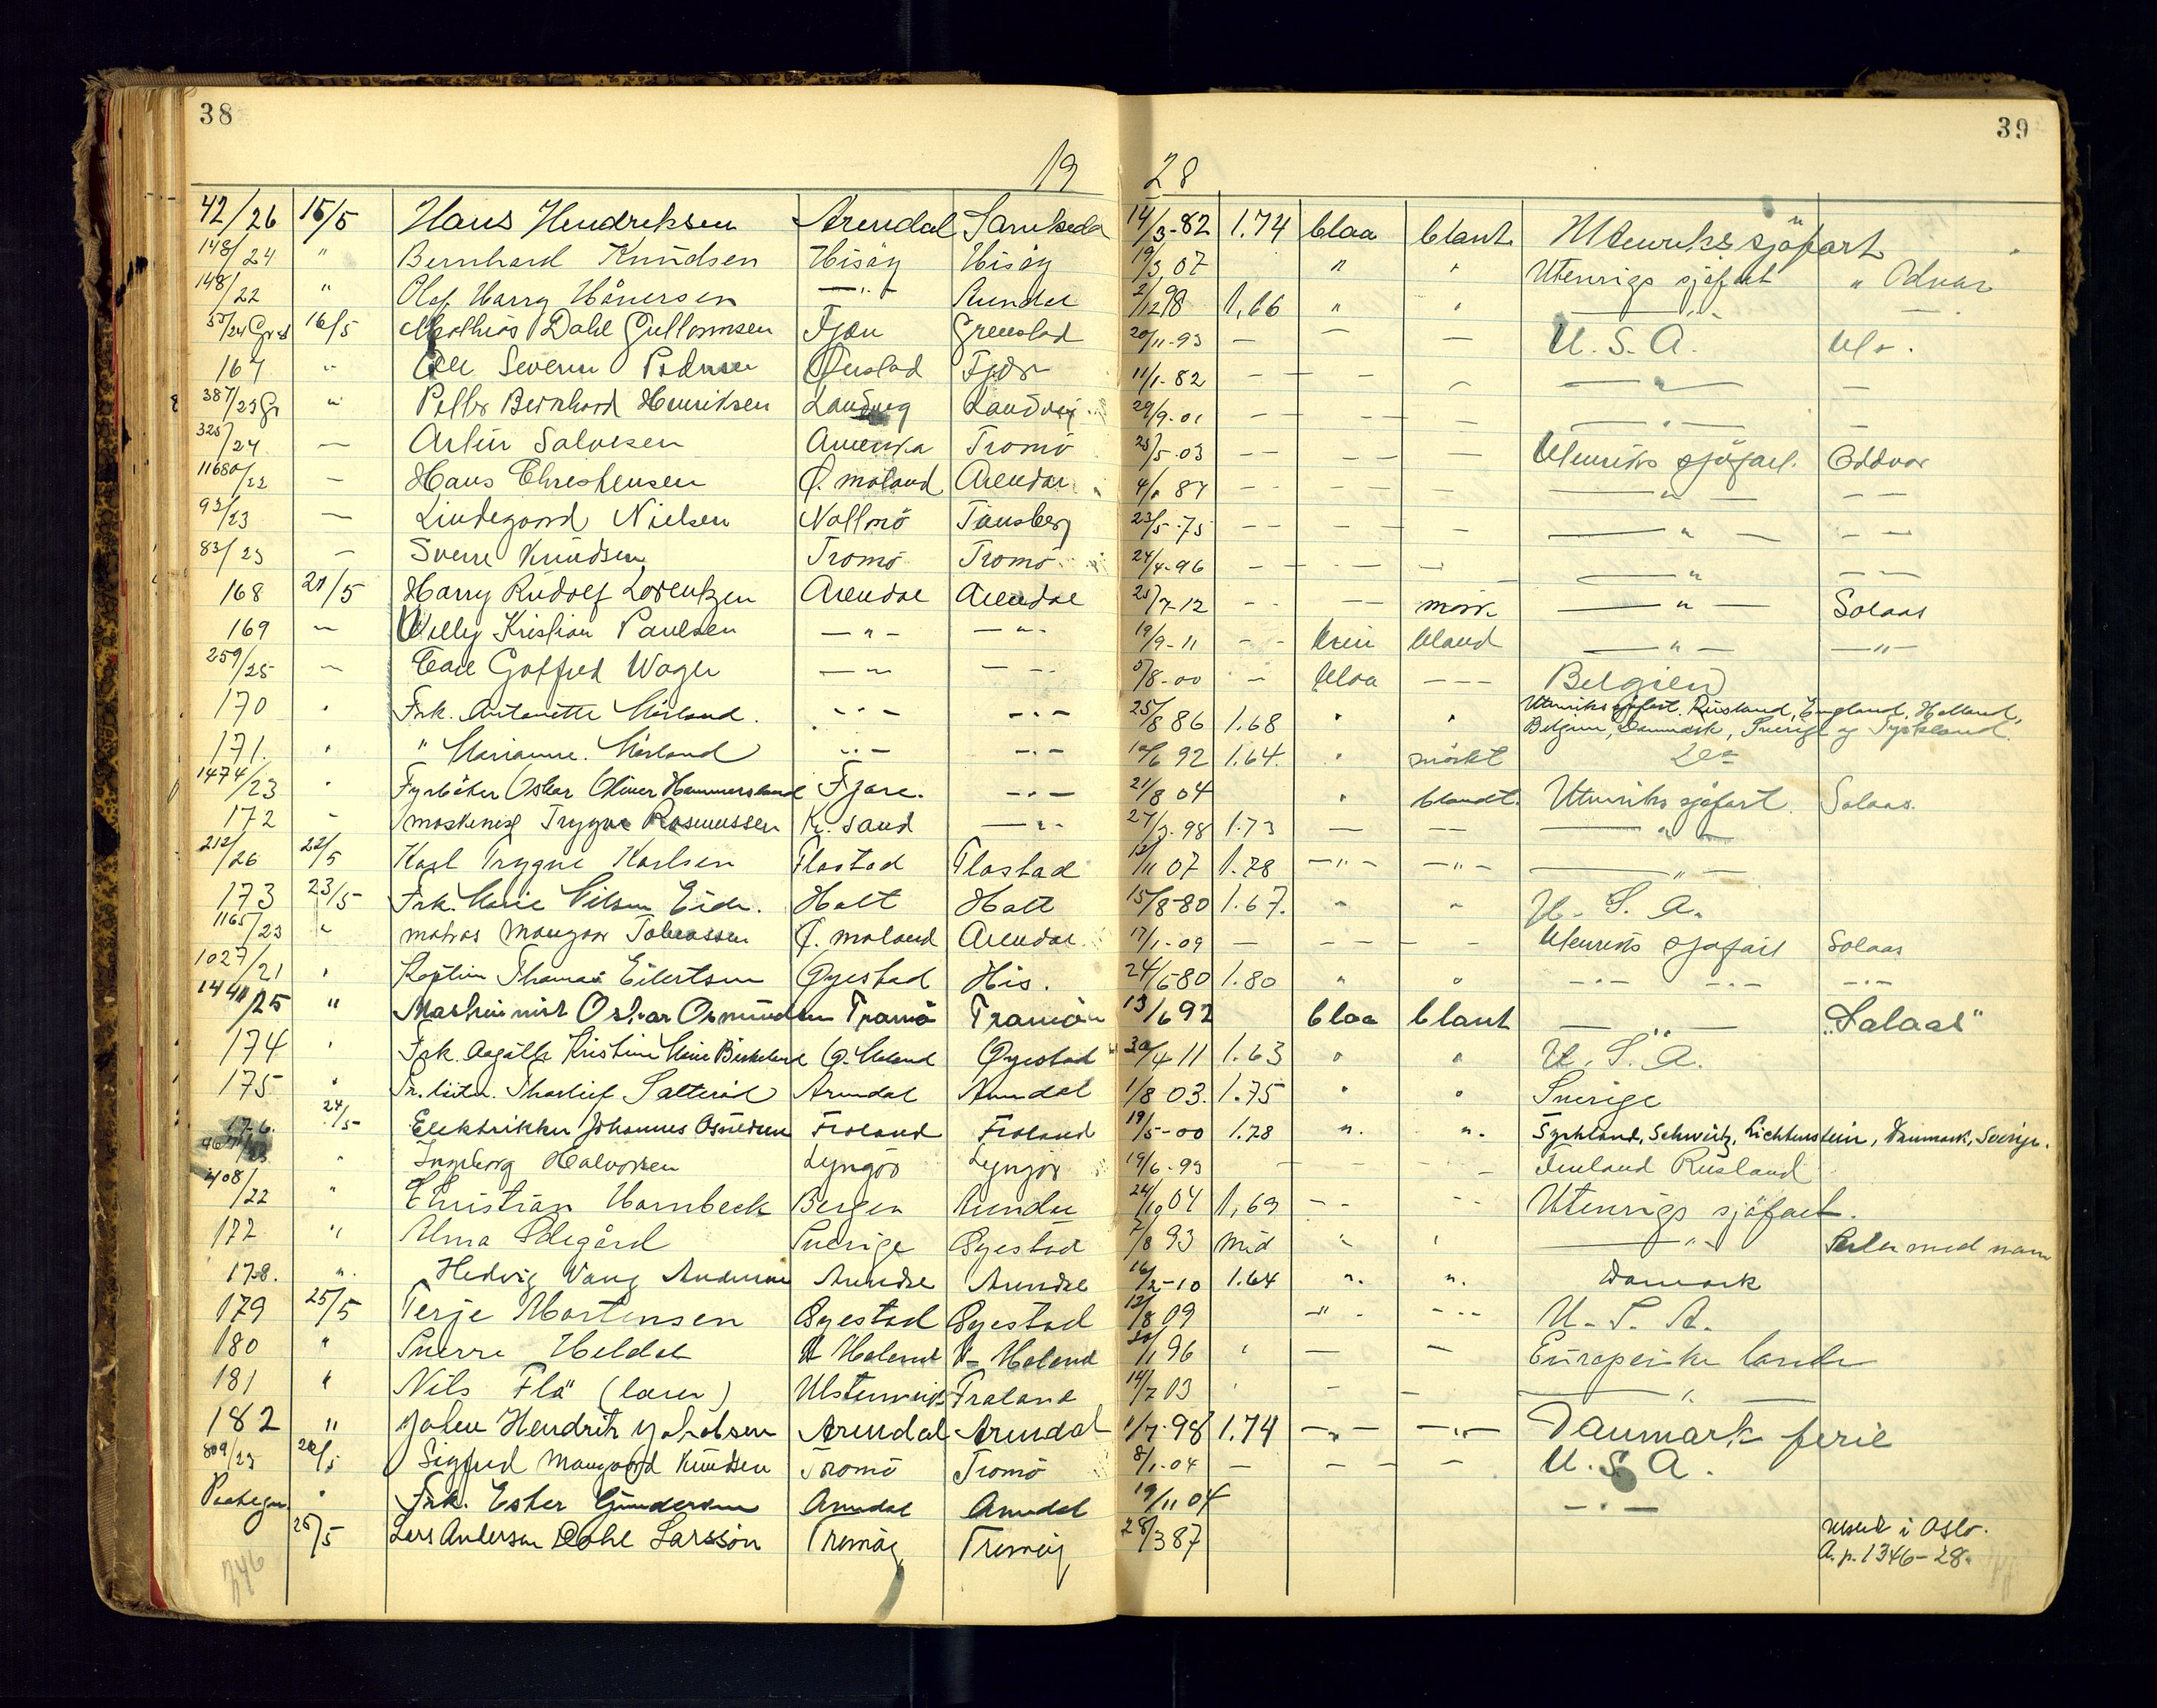 38
39
19 28
42/26 15/5 Hans Hendriksen Arendal 14/3-82 1.74 blaa blant Utenriks sjöfart
148/24 " Bernhard Knudsen Hisöy Hisöy 19/3 07 " " Utenrigs sjöfart
148/22 " Olaf Harry —"— Arendal 2/12 98 1,66 " " —"—
16/5 Mathias Dahl Gullormsen Fjære Grimstad 20/11-93 — — — U.S.A.
167 " Severin Pedersen Fjære 11/1-82 — — — —"— —
387/23 Gr " Bernhard Henriksen Landvig Landvig 29/9-01 — — — —"— —
325/24 — Artur Salvesen Amerika Tromö 25/5-03 — — — Utenriks sjöfart. Oddvar
11680/22 — Hans Christensen Ö. moland Arendal 87 — — — —"— — —
93/23 — Lindegaard Nielsen Tönsberg 23/5-75 — — — —"— — —
83/23 — Sverre Knudsen Tromö Tromö 24/4-96 — — — —"— — —
168 21/5 Harry Rudolf Lorentzen Arendal Arendal 25/7-12 — — mörk —"— Solaas
169 — Willy Kristian Paulsen —"— —"— 19/9-11 — — brun bland —"— —"—
259/25 — Carl Gotfred Wager —"— — — 5/8-00 — blaa — — Belgien
170 " Frk. Antonette Mörland. —"— —"— 25/8 86 1.68 " " Utenriks sjöfart. Rusland, England, Holland,
Belgien, Danmark, Sverige og Tyskland.
171. " " Marianne Mörland —"— —"— 10/6 92 1.64. " mörkt Do
1474/23 " Fyrböter Oskar Oliver Hammersland Fjære. —"— 21/8 04 " blandt. Utenriks sjöfart. Solaas.
172 — maskinist Trygve Rasmussen Kr. sand —"— 27/3-98 1.73 — — —"—
212/26 22/5 Karl Trygve Karlsen Flostad Flostad 12/11 07 1.78 —"— —"— —"—
173 23/5 Frk. Marie Nilsen Eide. Holt Holt 15/8-80 1.67. " " U. S. A.
1165/23 " matros Mangor Tobiassen Ö. moland Arendal 17/1-09 — — — — Utenriks sjöfart Solaas
1027/21 " Kaptein Thomas Eilertsen Öyestad His. 24/5 80 1.80 " " —"— —"— —"—
1441/25 " Maskinnist Oskar Osmundsen Tromö Tromö 13/6 92 blaa blant —"— "Solaas"
174 " Frk. Kristine Marie Birkeland Ö. Moland Öyestad 30/4 11 1.63 " " U. S. A.
175 " Pr. löitn. Thorleif Arendal Arendal 1/8 03. 1.75 " " Sverige
176. 24/5 Elektrikker Johannes Froland Froland 19/5-00 1.78 ". ". Tyskland, Schweitz, Lichtenstein, Danmark, Sverige.
" Ingeborg Halvorsen Lyngör Lyngör 19/6-93 — — — — Finland Rusland
408/22 " Christian Hornbeck Bergen Arendal 24/10 04 1,69 — — — — Utenrigs sjöfart.
177 " Alma Ödegård Sverige Öyestad 7/8 93 mid " " —"— med mann
178. ". Hedvig Vang Andersen Arendal Arendal 16/2-10 1.64 ". ". Danmark
179 25/5 Terje Mortensen Öyestad Öyestad 12/8 09 —"— — — — U. S. A.
180 " Sverre Heldal V. Moland V. Moland 96 " — — Europeiske lande
181 " Nils Flå (lærer) Froland 14/7 03 " — — —"—
182 " Johan Hendrik Jakobsen Arendal Arendal 1/7-98 1.74 —"— —"— Danmark ferie
809/23 26/5 Sigfred Mangor Knudsen Tromö Tromö 8/1-04 — — — — U. S. A.
" Frk. Ester Gundersen Arendal Arendal 19/11 04 —"—
26/5 Lars Andersen Dahl Larsson Tromöy Tromöy 28/3 87 utsted i Oslo.
A. p. 1346-28.